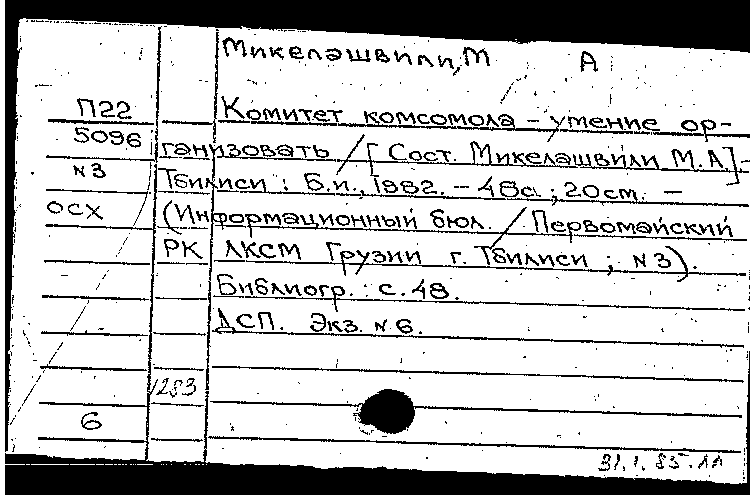 Микелашвили, М А
П22 Комитет комсомола - умение ор-
5096 ганизовать / [Сост. Микелашвили М.А.]. -
№3 Тбилиси : Б.и., 1982. - 48с. ; 20см. -
ОСХ (Информационный бюл. / Первомайский
РК ЛКСМ Грузии г. Тбилиси ; №3).
Библиогр.: с. 48.
ДСП. Экз. №6.
1283
6
31.1.85.